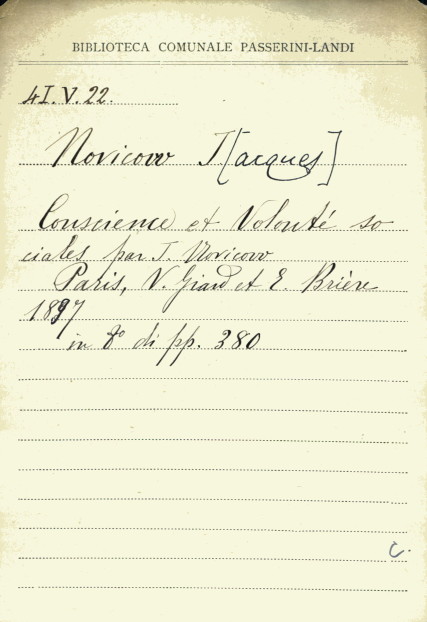 BIBLIOTECA COMUNALE PASSERINI-LANDI
4I.V.22.
Novicow J[acques]
Conscience et Volonté so
ciales par J. Novicow
Paris, V. Giard et E. Brière
1897
in 8° di pp. 380
C.